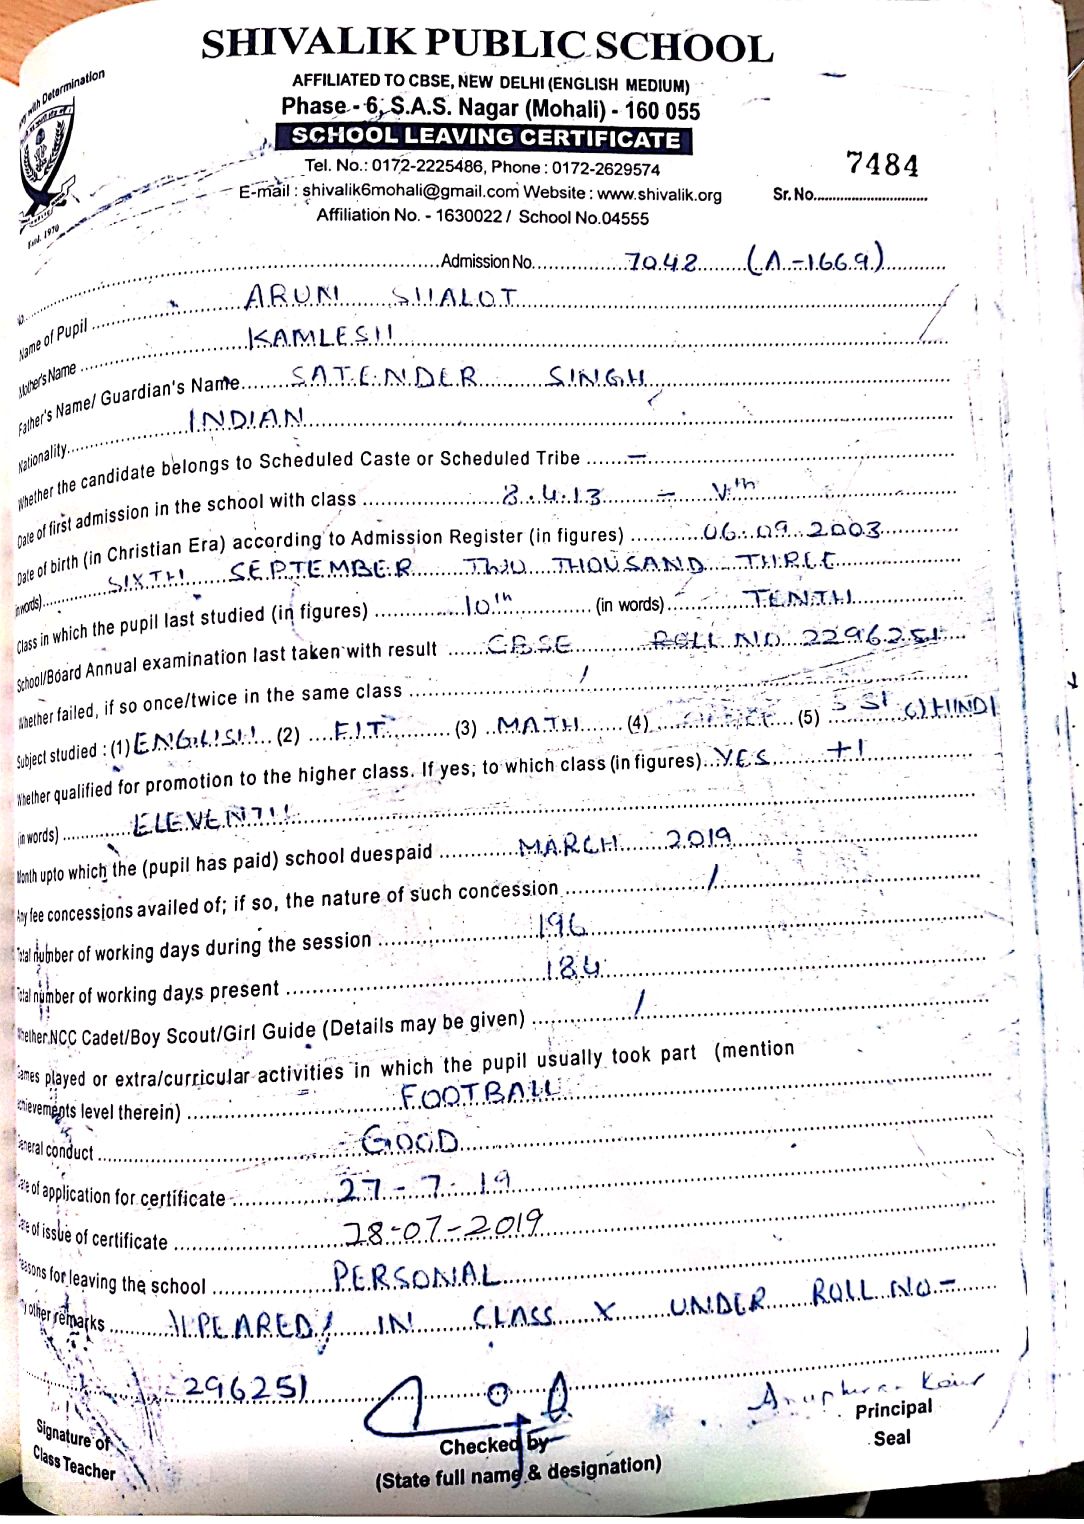 SHIVALIK PUBLIC SCHOOL
AFFILIATED TO CBSE, NEW DELHI (ENGLISH MEDIUM)
with Determination
Phase - 6, S.A.S. Nagar (Mohali) - 160 055
SCHOOL LEAVING CERTIFICATE
Tel. No.: 0172-2225486, Phone : 0172-2629574
7484
E-mail : shivalik6mohali@gmail.com Website : www.shivalik.org
Sr. No.
Affiliation No. - 1630022 / School No.04555
Estd. 1970
Admission No. 7042 (A-1669)
Name of Pupil ARUN SHALOT
Mother's Name KAMLESH
Father's Name/ Guardian's Name SATENDER SINGH
Nationality INDIAN
Whether the candidate belongs to Scheduled Caste or Scheduled Tribe –
Date of first admission in the school with class 8.4.13 – Vth
Date of birth (in Christian Era) according to Admission Register (in figures) 06.09.2003
in words) SIXTH SEPTEMBER TWO THOUSAND THREE
Class in which the pupil last studied (in figures) 10th (in words) TENTH
School/Board Annual examination last taken with result CBSE ROLL NO 2296251
Whether failed, if so once/twice in the same class /
Subject studied : (1) ENGLISH (2) FIT (3) MATH (4) (5) S St 6) HINDI
Whether qualified for promotion to the higher class. If yes; to which class (in figures) YES +1
(in words) ELEVENTH
Month upto which the (pupil has paid) school duespaid MARCH 2019
Any fee concessions availed of; if so, the nature of such concession /
Total number of working days during the session 196
Total number of working days present 184
Whether NCC Cadet/Boy Scout/Girl Guide (Details may be given) /
Games played or extra/curricular activities in which the pupil usually took part (mention
achievements level therein) FOOTBALL
General conduct GOOD
Date of application for certificate 27-7-19
Date of issue of certificate 28-07-2019
Reasons for leaving the school PERSONAL
Any other remarks APPEARED IN CLASS X UNDER ROLL NO-
296251
Anuphran Kaur
Principal
Seal
Signature of
Class Teacher
Checked by
(State full name & designation)